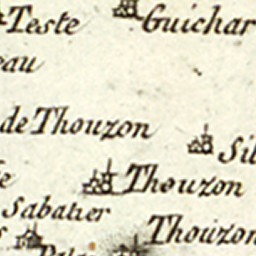 Teste
Guichar
eau
de Thouzon
Sil
Thouzon
Sabatier
Thouzon